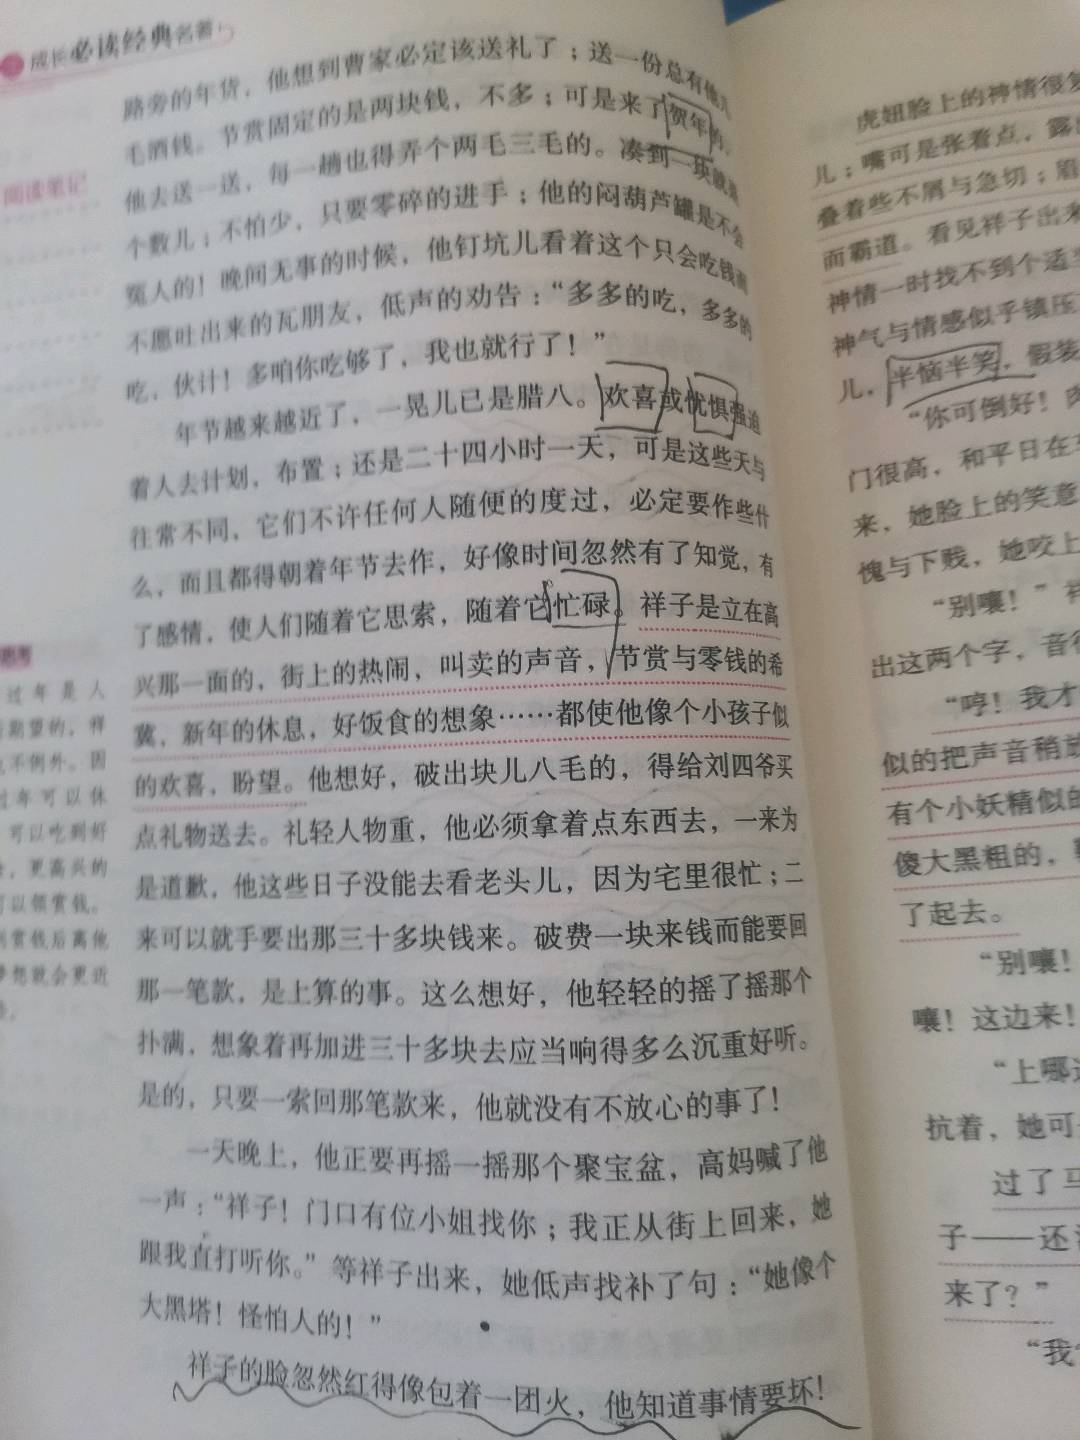 成长必读经典名著
路旁的年货，他想到曹家必定该送礼了；送一份总有他几
毛酒钱。节赏固定的是两块钱，不多；可是来了贺年的，
他去送一送，每一趟也得弄个两毛三毛的。凑到一块就是
个数儿；不怕少，只要零碎的进手；他的闷葫芦罐是不会
冤人的！晚间无事的时候，他钉坑儿看着这个只会吃钱而
不愿吐出来的瓦朋友，低声的劝告：“多多的吃，多多的
吃，伙计！多咱你吃够了，我也就行了！”
年节越来越近了，一晃儿已是腊八。欢喜或忧惧强迫
着人去计划，布置；还是二十四小时一天，可是这些天与
往常不同，它们不许任何人随便的度过，必定要作些什
么，而且都得朝着年节去作，好像时间忽然有了知觉，有
了感情，使人们随着它思索，随着它忙碌。祥子是立在高
兴那一面的，街上的热闹，叫卖的声音，节赏与零钱的希
冀，新年的休息，好饭食的想象……都使他像个小孩子似
的欢喜，盼望。他想好，破出块儿八毛的，得给刘四爷买
点礼物送去。礼轻人物重，他必须拿着点东西去，一来为
是道歉，他这些日子没能去看老头儿，因为宅里很忙；二
来可以就手要出那三十多块钱来。破费一块来钱而能要回
那一笔款，是上算的事。这么想好，他轻轻的摇了摇那个
扑满，想象着再加进三十多块去应当响得多么沉重好听。
是的，只要一索回那笔款来，他就没有不放心的事了！
一天晚上，他正要再摇一摇那个聚宝盆，高妈喊了他
一声：“祥子！门口有位小姐找你；我正从街上回来，她
跟我直打听你。”等祥子出来，她低声找补了句：“她像个
大黑塔！怪怕人的！”
祥子的脸忽然红得像包着一团火，他知道事情要坏！
阅读笔记
思考
过年是人
期望的，祥
不例外。因
过年可以休
可以吃到好
，更高兴的
可以领赏钱。
到赏钱后离他
梦想就会更近
虎妞脸上的神情很复
儿；嘴可是张着点，露出
叠着些不屑与急切；眉
而霸道。看见祥子出来
神情一时找不到个适当
神气与情感似乎镇压
儿，半恼半笑，假装
“你可倒好！肉
门很高，和平日在车
来，她脸上的笑意
愧与下贱，她咬上
“别嚷！”祥
出这两个字，音很
“哼！我才
似的把声音稍放
有个小妖精似的
傻大黑粗的，鞋
了起去。
“别嚷！
嚷！这边来！
“上哪边
抗着，她可
过了马
子——还
来了？”
“我